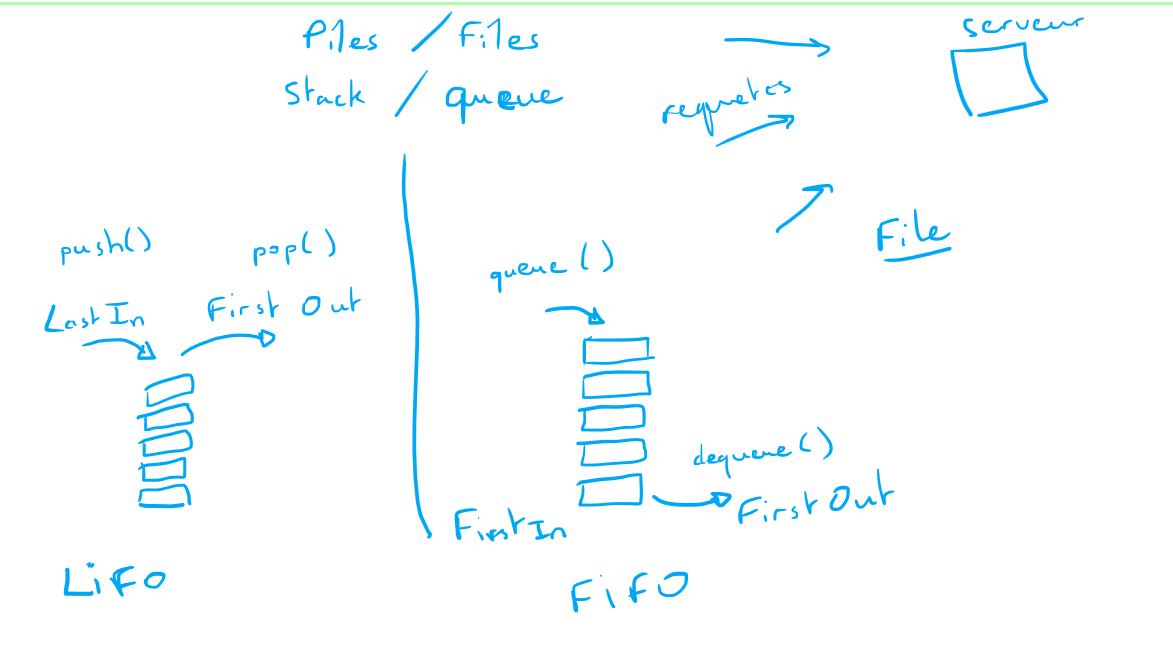 Piles / Files
Stack / queue
serveur
requetes
File
push()
pop()
Last In
First Out
LiFO
queue ()
dequeue()
First Out
First In
FiFO